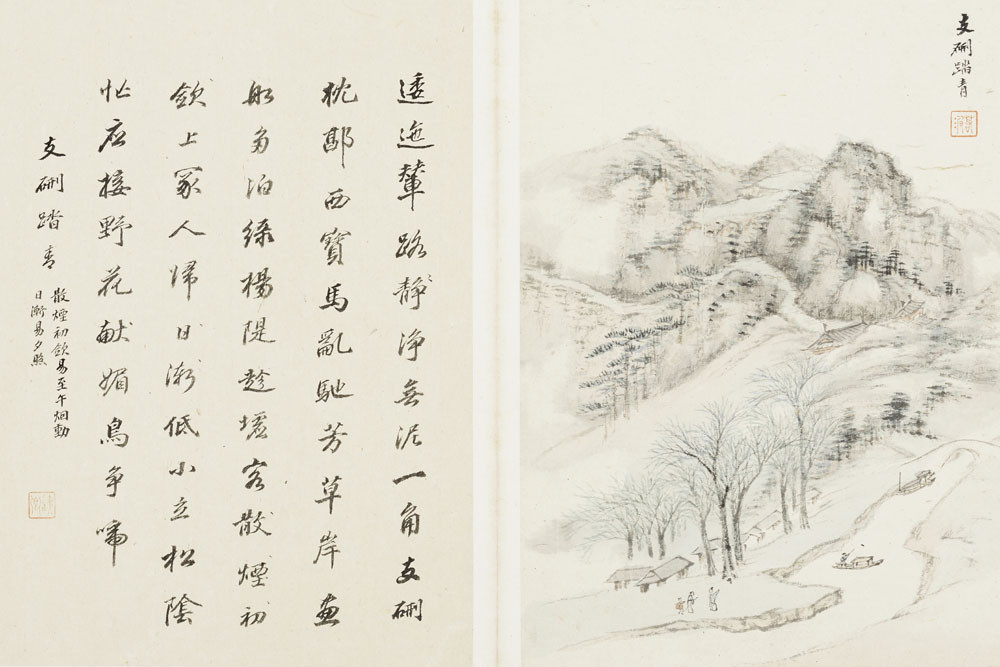 支硎踏青
逶迤輦路靜淨無泥一角支硎
枕郡西寶馬亂馳芳草岸畫
船多泊綠楊隄趁墟客散煙初
歛上冢人歸日漸低小立松陰
忙应接野花献媚鳥爭啼
支硎踏青
散煙初歛易至午烟動
日漸易夕照